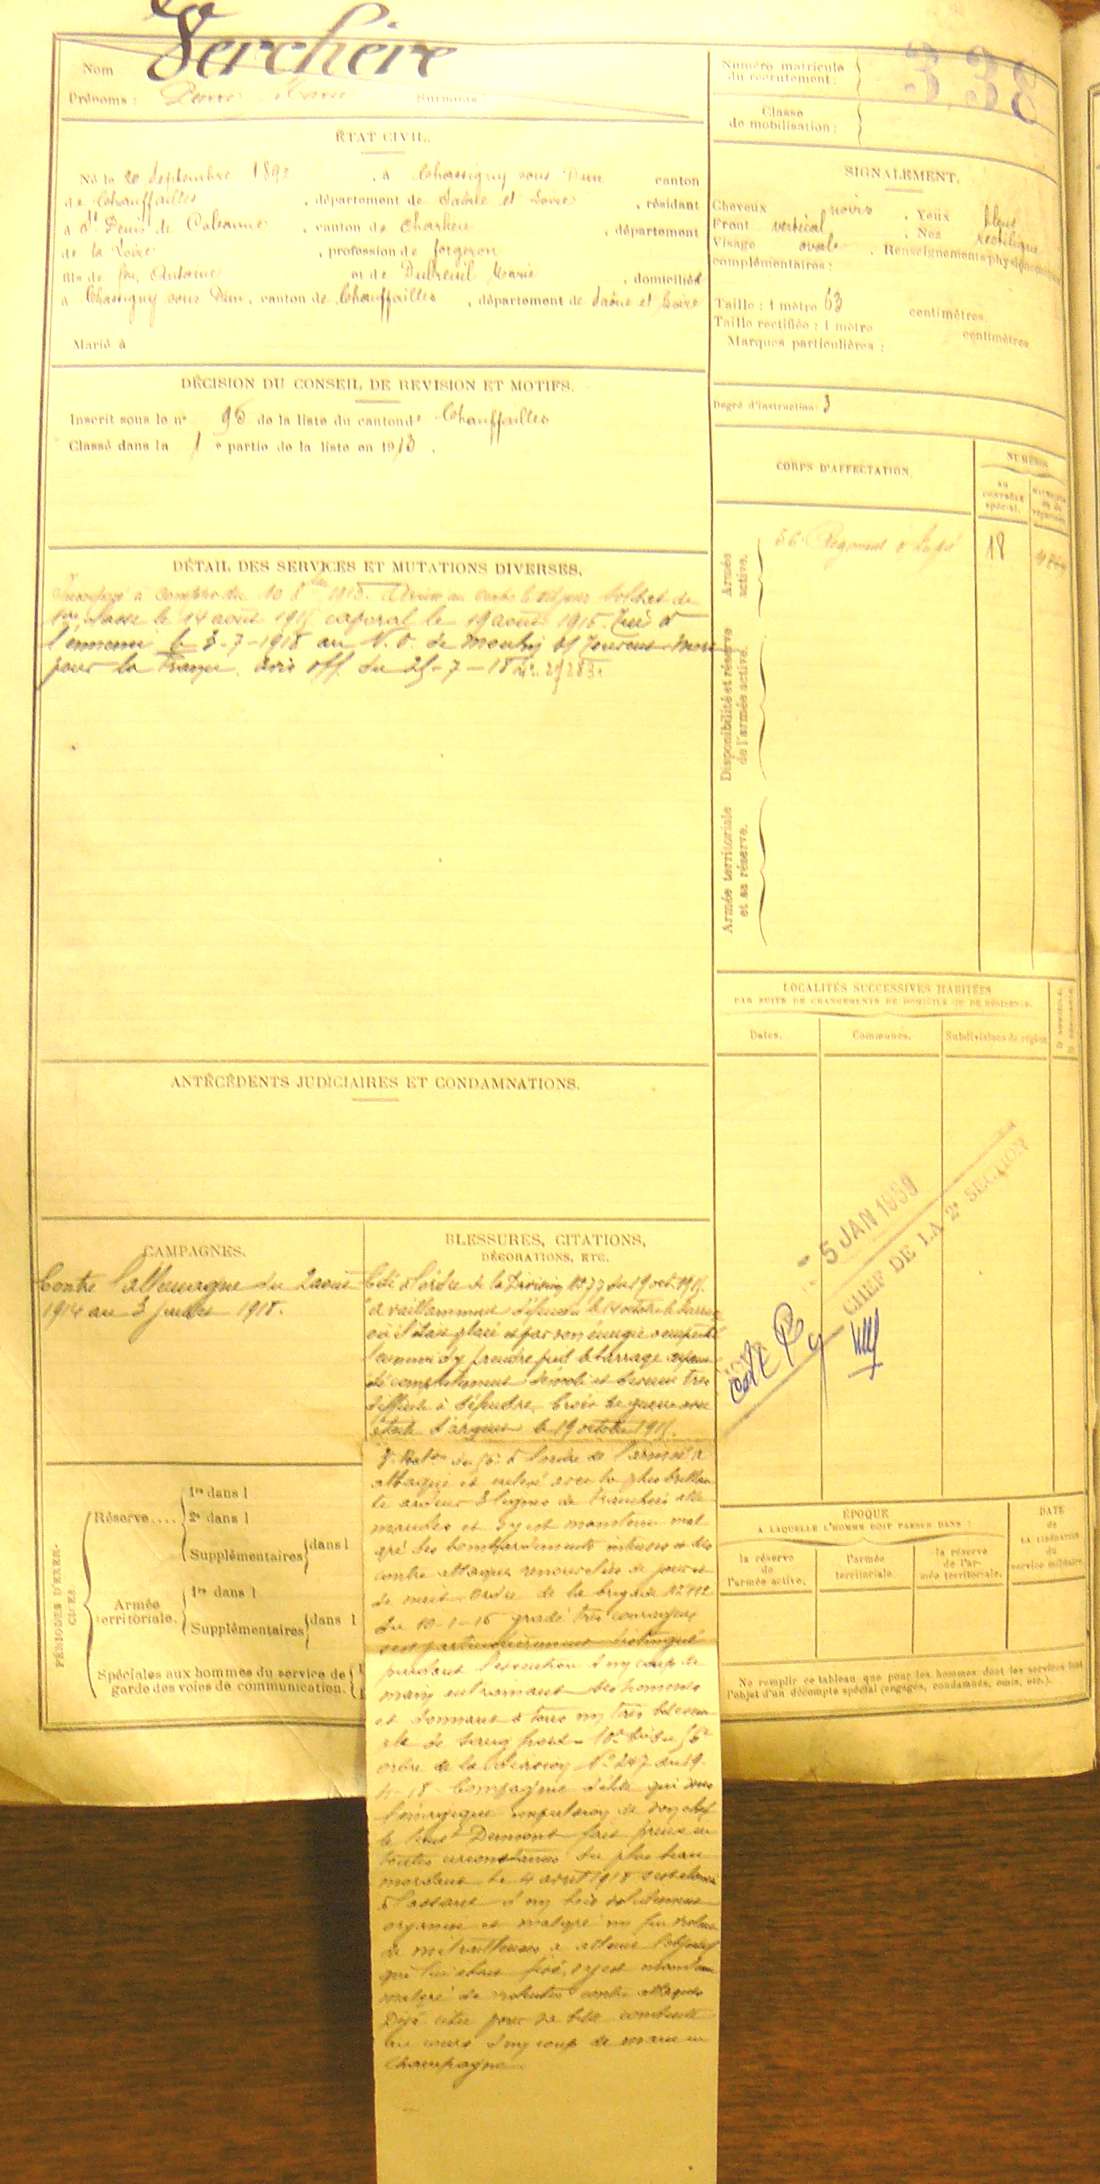 Nom Verchère
Prénoms : Surnoms
ÉTAT CIVIL.
Né le 20 Septembre 189 , à Chassigny sous Dun canton
de Chauffailles , département de Saône et Loire , résidant
à St Denis de Cabanne , canton de Charlieu , département
de la Loire , profession de forgeron
fils de feu Antoine et de Dubreuil Marie , domiciliés
à Chassigny sous Dun , canton de Chauffailles , département de Saône et Loire
Marié à
DÉCISION DU CONSEIL DE REVISION ET MOTIFS.
Inscrit sous le no 95 de la liste du canton de Chauffailles
Classé dans la 1 e partie de la liste en 1913 .
DÉTAIL DES SERVICES ET MUTATIONS DIVERSES.
Incorporé à compter du 10 1913. Arrivé au corps le dit jour Soldat de
1re classe le 14 août 1915 caporal le 19 août 1915. Tué à
l'ennemi le 3-7-1918 au N.O. de Moulin s/s Touvent Mort
pour la France. avis off. du 25-7-18
ANTÉCÉDENTS JUDICIAIRES ET CONDAMNATIONS.
CAMPAGNES.
Contre l'allemagne du 2 août
1914 au 3 juillet 1918.
BLESSURES, CITATIONS,
DÉCORATIONS, ETC.
Cité à l'ordre de la Division No 77 du 19 oct. 1915.
a vaillamment défendu le 14 octobre le barrage
où il était placé et par son énergie a empêché
l'ennemi d'y prendre pied le barrage ayant
été complètement démoli et devenu très
difficile à défendre Croix de guerre avec
étoile d'argent le 19 octobre 1915.
du 56e à l'ordre de l'armée a
attaqué et enlevé avec la plus brillan
te ardeur 3 lignes de tranchées alle
mandes et s'y est maintenu mal
gré des bombardements intenses et des
contre attaques renouvelées de jour et
de nuit. Ordre de la brigade No 112
du 10-1-16 gradé très courageux
s'est particulièrement distingué
pendant l'exécution d'un coup de
main entrainant ses hommes
et donnant à tous un très bel exem
ple de sang froid - 10e Cie du 56e
ordre de la Division No 247 du 29
4-18 Compagnie d'élite qui sous
l'énergique impulsion de son chef
le Lieut Dumont fait preuve en
toutes circonstances du plus beau
mordant le 4 avril 1918 s'est élancé
à l'assaut d'un bois solidement
organisé et malgré un feu violent
de mitrailleuses a atteint l'objectif
qui lui était fixé, s'y est maintenu
malgré de violentes contre attaques
Déjà citée pour sa belle conduite
au cours d'un coup de main en
Champagne
PÉRIODES D'EXER-
CICES
Réserve....
1re dans l
2e dans l
Supplémentaires dans l
Armée
territoriale.
1re dans l
Supplémentaires dans l
Spéciales aux hommes du service de
garde des voies de communication.
Numéro matricule
du recrutement : 338
Classe
de mobilisation :
SIGNALEMENT.
Cheveux noirs , Yeux bleus
Front vertical , Nez rectiligne
Visage ovale , Renseignements physionomiques
complémentaires :
Taille : 1 mètre 63 centimètres.
Taille rectifiée : 1 mètre centimètres
Marques particulières :
Degré d'instruction : 3
CORPS D'AFFECTATION.
NUMÉROS
au
contrôle
spécial.
Armée
active.
56e Régiment d'Infie 18
Disponibilité et réserve
de l'armée active.
Armée territoriale
et sa réserve.
LOCALITÉS SUCCESSIVES HABITÉES
PAR SUITE DE CHANGEMENTS DE DOMICILE OU DE RÉSIDENCE.
Dates.
Communes.
Subdivisions de région
D domicile.
R résidence.
5 JAN 1939
CHEF DE LA 2e SECTION
ÉPOQUE
A LAQUELLE L'HOMME DOIT PASSER DANS :
la réserve
de
l'armée active.
l'armée
territoriale.
la réserve
de l'ar-
mée territoriale.
DATE
de
LA LIBÉRATION
du
service militaire.
Ne remplir ce tableau que pour les hommes dont les services font
l'objet d'un décompte spécial (engagés, condamnés, omis, etc.).